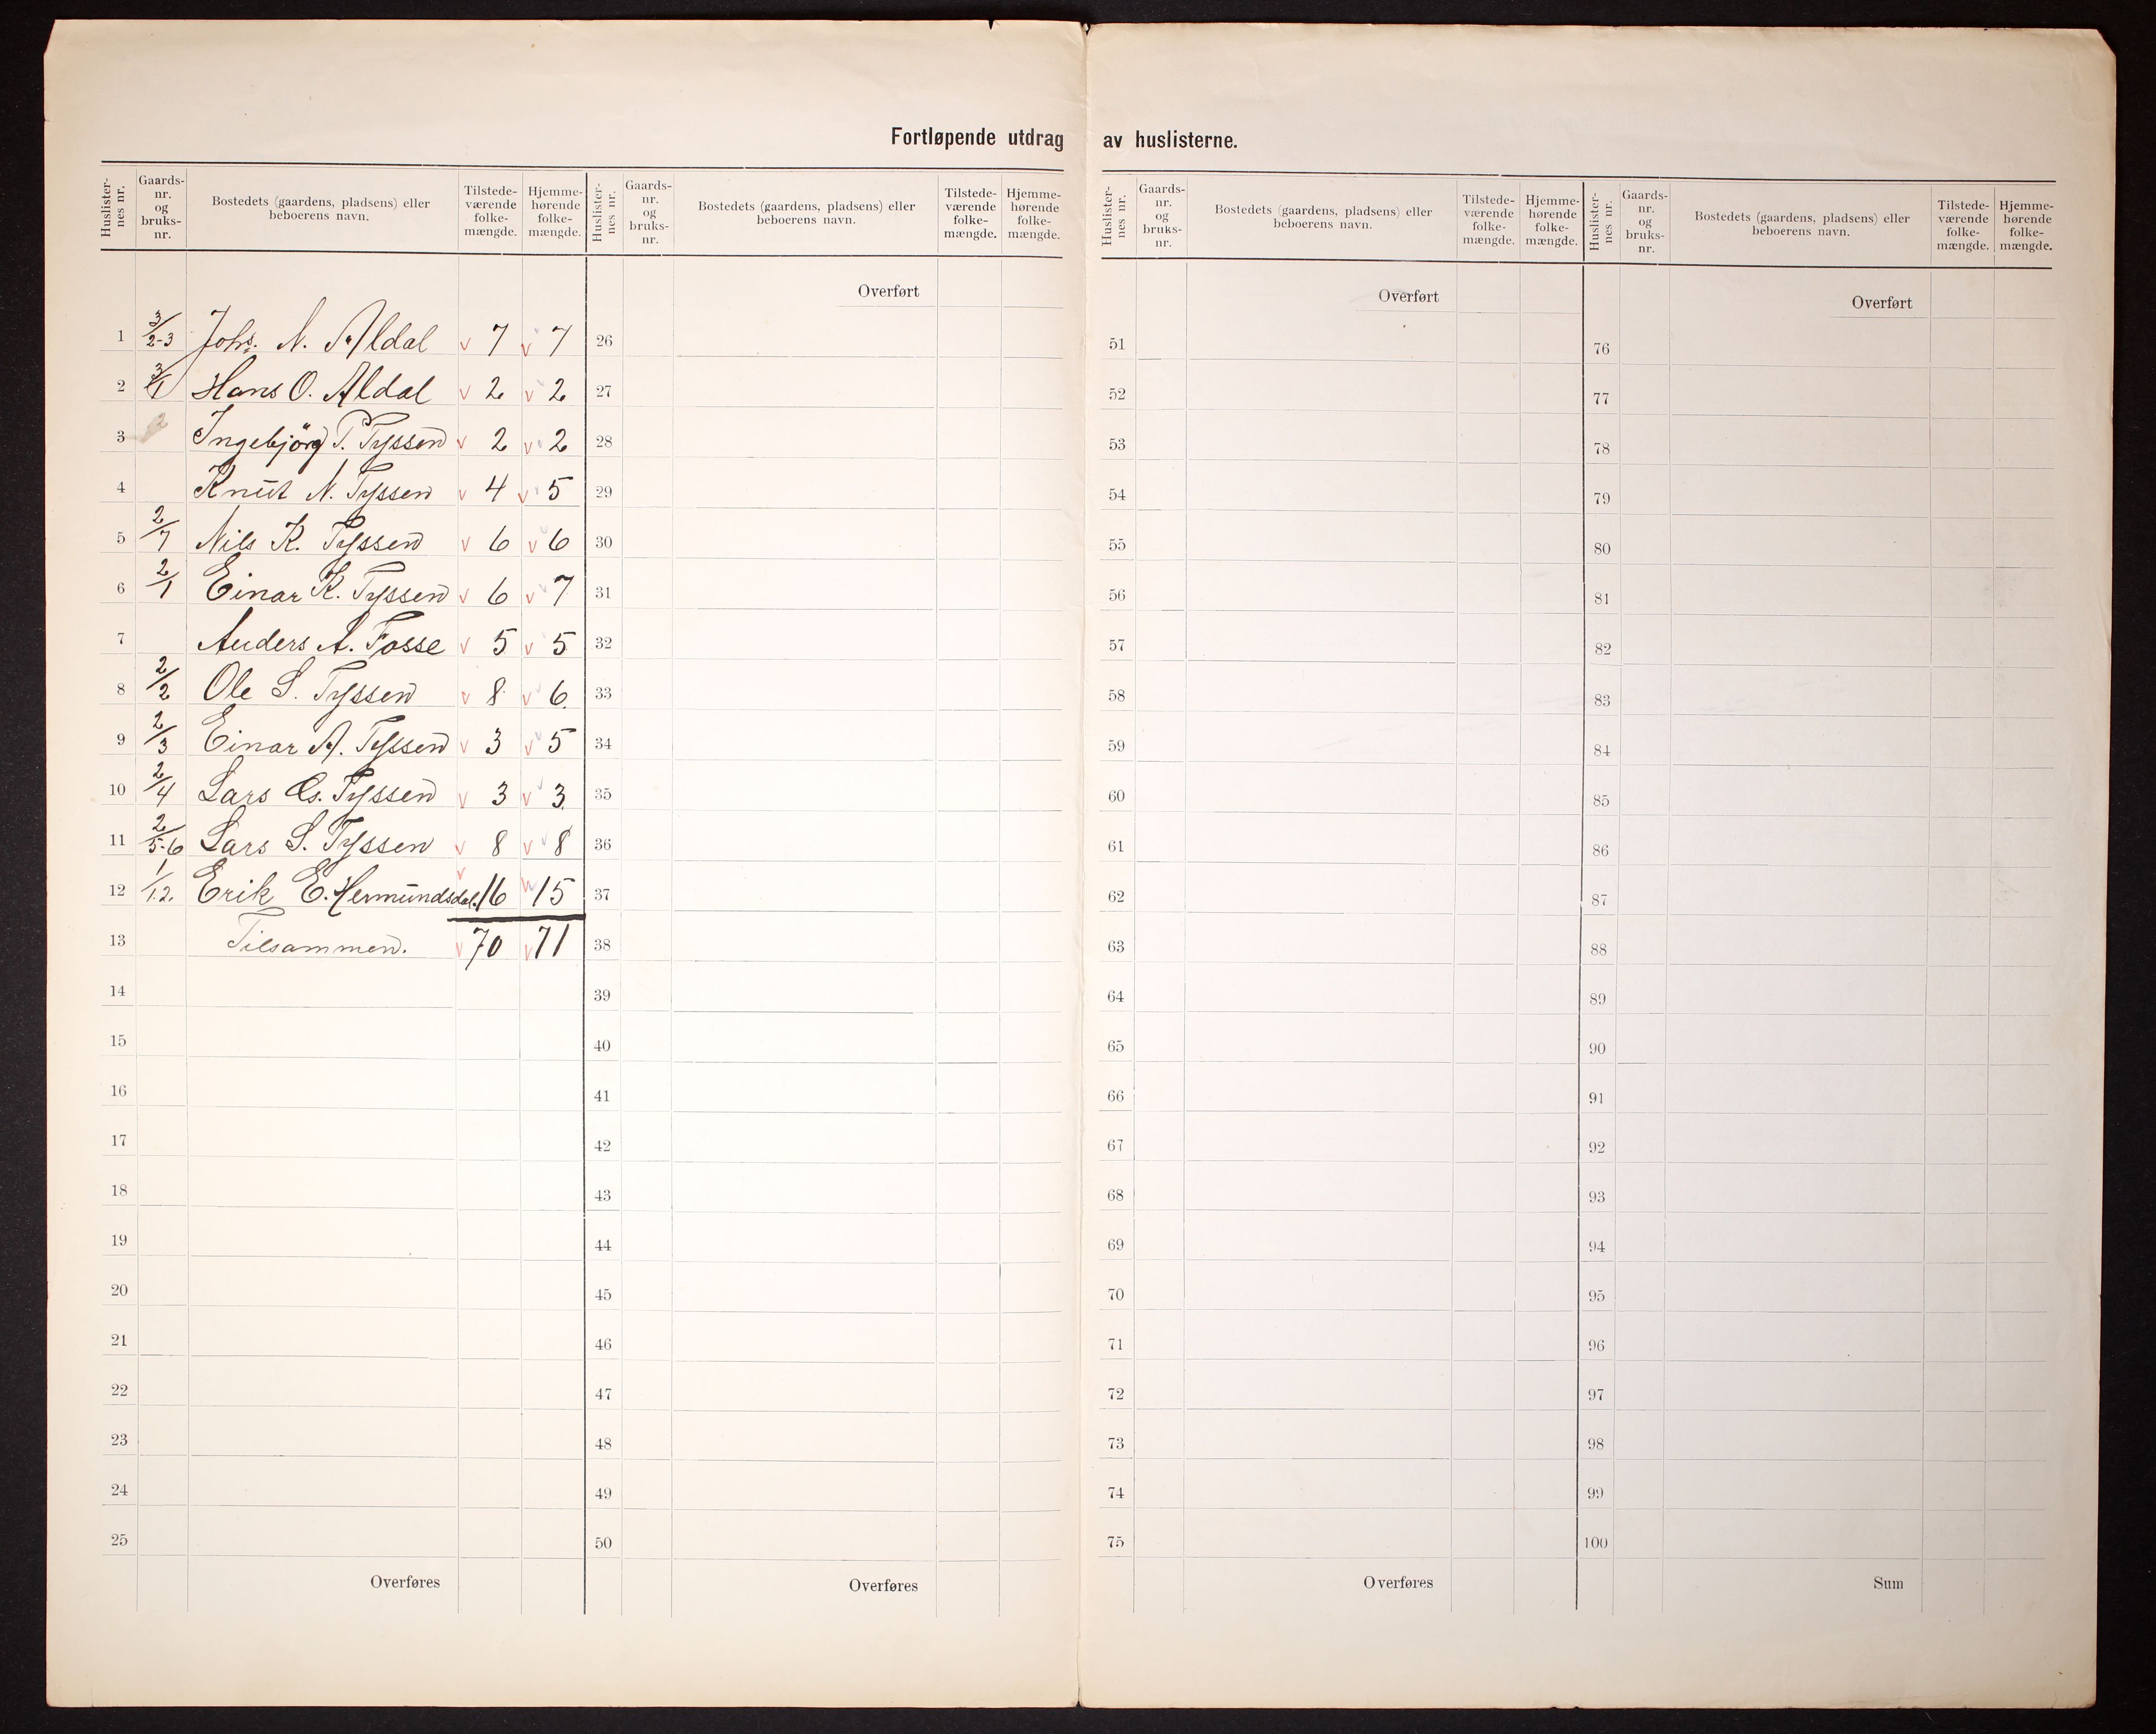 Fortløpende utdrag av huslisterne.
Huslister-nes nr. Gaards-nr. og bruks-nr. Bostedets (gaardens, pladsens) eller beboerens navn. Tilstede-værende folke-mængde. Hjemme-hørende folke-mængde.
1 3/2-3 Johs. N. Aldal v 7 v 7
2 3/1 Hans O. Aldal v 2 v 2
3 2 Ingebjörg P. Tyssen v 2 v 2
4 Knut N. Tyssen v 4 v 5
5 2/7 Nils K. Tyssen v 6 v 6
6 2/1 Einar K. Tyssen v 6 v 7
7 Anders A. Fosse v 5 v 5
8 2/2 Ole S. Tyssen v 8 v 6
9 2/3 Einar A. Tyssen v 3 v 5
10 2/4 Lars Tyssen v 3 v 3
11 2/5-6 Lars S. Tyssen v 8 v 8
12 1/1.2. Erik E. Hermundsdal. v 16 v 15
13 Tilsammen. v 70 v 71
14
15
16
17
18
19
20
21
22
23
24
25
Overføres
Huslister-nes nr. Gaards-nr. og bruks-nr. Bostedets (gaardens, pladsens) eller beboerens navn. Tilstede-værende folke-mængde. Hjemme-hørende folke-mængde.
Overført
26
27
28
29
30
31
32
33
34
35
36
37
38
39
40
41
42
43
44
45
46
47
48
49
50
Overføres
Huslister-nes nr. Gaards-nr. og bruks-nr. Bostedets (gaardens, pladsens) eller beboerens navn. Tilstede-værende folke-mængde. Hjemme-hørende folke-mængde.
Overført
51
52
53
54
55
56
57
58
59
60
61
62
63
64
65
66
67
68
69
70
71
72
73
74
75
Overføres
Huslister-nes nr. Gaards-nr. og bruks-nr. Bostedets (gaardens, pladsens) eller beboerens navn. Tilstede-værende folke-mængde. Hjemme-hørende folke-mængde.
Overført
76
77
78
79
80
81
82
83
84
85
86
87
88
89
90
91
92
93
94
95
96
97
98
99
100
Sum